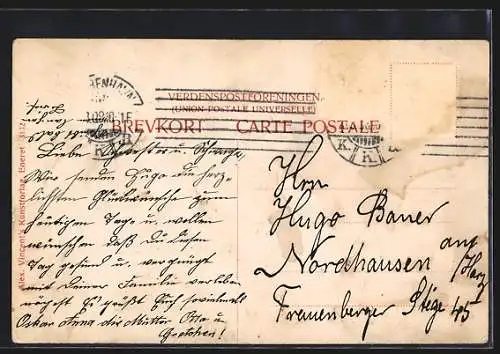 VERDENSPOSTFORENINGEN
(UNION POSTALE UNIVERSELLE)
BREVKORT CARTE POSTALE
Alex. Vincent's Kunstforlag, Eneret
Liebe u.
Wir senden Hugo die herz-
lichsten Glückwünsche zum
heutigen Tage u. wollen
wünschen daß Du diesen
Tag gesund u. vergnügt
mit Deiner Familie verleben
Es grüßt Euch
Oskar Anna die Mutter Otto u
Gretchen!
Hern
Hugo Bauer
Nordhausen am Harz
Frauenberger Stiege